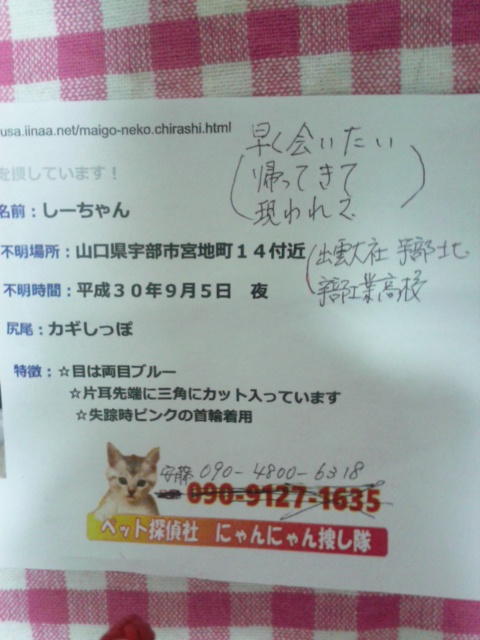 usa.iinaa.net/maigo-neko.chirashi.html
早く会いたい
(帰ってきて)
現われて
を捜しています！
名前：しーちゃん
不明場所：山口県宇部市宮地町１４付近
(出雲大社 宇部北
宇部工業高校
不明時間：平成３０年９月５日 夜
尻尾：カギしっぽ
特徴：☆目は両目ブルー
☆片耳先端に三角にカット入っています
☆失踪時ピンクの首輪着用
安藤 090-4800-6318
090-9127-1635
ペット探偵社 にゃんにゃん捜し隊